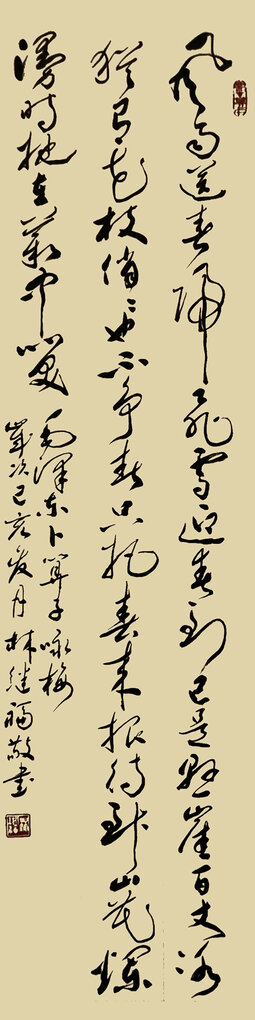 風雨送春歸飛雪迎春到已是懸崖百丈冰
猶有花枝俏俏也不争春只把春来报待到山花爛
漫時她在叢中笑
毛澤东卜算子咏梅
歲次己亥月林继福敬書